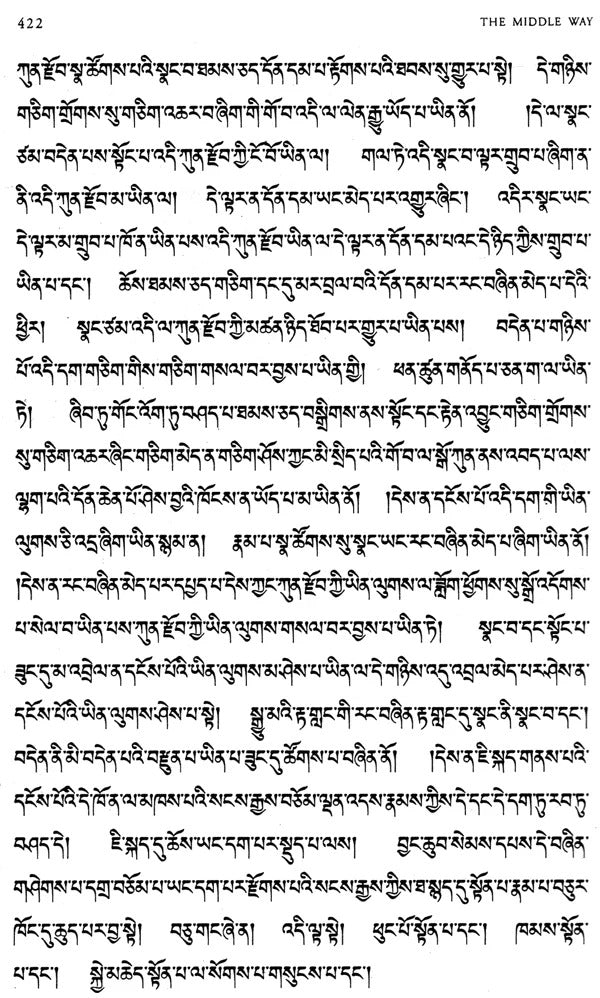 422 THE MIDDLE WAY
ཀུན་རྫོབ་སྣ་ཚོགས་པའི་སྣང་བ་ཐམས་ཅད་དོན་དམ་པ་རྟོགས་པའི་ཐབས་སུ་གྱུར་པ་སྟེ། དེ་གཉིས་
གཅིག་གྲོགས་སུ་གཅིག་འཆར་བ་ཞིག་གི་གོ་བ་འདི་ལ་ལེན་རྒྱུ་ཡོད་པ་ཡིན་ནོ། །དེ་ལ་སྣང་
ཙམ་བདེན་པས་སྟོང་པ་འདི་ཀུན་རྫོབ་ཀྱི་ངོ་བོ་ཡིན་ལ། གལ་ཏེ་འདི་སྣང་བ་ལྟར་གྲུབ་པ་ཞིག་ན་
ནི་འདི་ཀུན་རྫོབ་མ་ཡིན་ལ། དེ་ལྟར་ན་དོན་དམ་ཡང་མེད་པར་འགྱུར་ཞིང་། འདིར་སྣང་ཡང་
དེ་ལྟར་མ་གྲུབ་པ་ཁོ་ན་ཡིན་པས་འདི་ཀུན་རྫོབ་ཡིན་ལ་དེ་ལྟར་ན་དོན་དམ་པའང་དེ་ཉིད་ཀྱིས་གྲུབ་པ་
ཡིན་པ་དང་། ཆོས་ཐམས་ཅད་གཅིག་དང་དུ་མར་བྲལ་བའི་དོན་དམ་པར་རང་བཞིན་མེད་པ་དེའི་
ཕྱིར། སྣང་ཙམ་འདི་ལ་ཀུན་རྫོབ་ཀྱི་མཚན་ཉིད་ཐོབ་པར་གྱུར་པ་ཡིན་པས། བདེན་པ་གཉིས་
པོ་འདི་དག་གཅིག་གིས་གཅིག་གསལ་བར་བྱས་པ་ཡིན་གྱི། ཕན་ཚུན་གནོད་པ་ཅན་ག་ལ་ཡིན་
ཏེ། ཞིབ་ཏུ་གོང་འོག་ཏུ་བཤད་པ་ཐམས་ཅད་བསྒྲིགས་ནས་སྟོང་དང་རྟེན་འབྱུང་གཅིག་གྲོགས་
སུ་གཅིག་འཆར་ཞིང་གཅིག་མེད་ན་གཅིག་ཤོས་ཀྱང་མི་སྲིད་པའི་གོ་བ་ལ་སྒོ་ཀུན་ནས་འབད་པ་ལས་
ལྷག་པའི་དོན་ཆེན་པོ་ཤེས་བྱའི་ཁོངས་ན་ཡོད་པ་མ་ཡིན་ནོ། །དེས་ན་དངོས་པོ་འདི་དག་གི་ཡིན་
ལུགས་ཅི་འདྲ་ཞིག་ཡིན་སྙམ་ན། རྣམ་པ་སྣ་ཚོགས་སུ་སྣང་ཡང་རང་བཞིན་མེད་པ་ཞིག་ཡིན་ནོ།
།དེས་ན་རང་བཞིན་མེད་པར་དཔྱད་པ་དེས་ཀྱང་ཀུན་རྫོབ་ཀྱི་ཡིན་ལུགས་ལ་ཟློག་ཕྱོགས་སུ་སྒྲོ་འདོགས་
པ་སེལ་བ་ཡིན་པས་ཀུན་རྫོབ་ཀྱི་ཡིན་ལུགས་གསལ་བར་བྱས་པ་ཡིན་ཏེ། སྣང་བ་དང་སྟོང་པ་
ཟུང་དུ་མ་འབྲེལ་ན་དངོས་པོའི་ཡིན་ལུགས་མ་ཤེས་པ་ཡིན་ལ་དེ་གཉིས་འདུ་འབྲལ་མེད་པར་ཤེས་ན་
དངོས་པོའི་ཡིན་ལུགས་ཤེས་པ་སྟེ། སྒྱུ་མའི་རྟ་གླང་གི་རང་བཞིན་རྟ་གླང་དུ་སྣང་ནི་སྣང་བ་དང་།
བདེན་ནི་མི་བདེན་པའི་བརྫུན་པ་ཡིན་པ་ཟུང་དུ་ཚོགས་པ་བཞིན་ནོ། །དེས་ན་ཇི་སྐད་གནས་པའི་
དངོས་པོའི་དེ་ཁོ་ན་ལ་མཁས་པའི་སངས་རྒྱས་བཅོམ་ལྡན་འདས་རྣམས་ཀྱིས་དེ་དང་དེ་དག་ཏུ་རབ་ཏུ་
བཤད་དེ། ཇི་སྐད་དུ་ཆོས་ཡང་དག་པར་སྡུད་པ་ལས། བྱང་ཆུབ་སེམས་དཔས་དེ་བཞིན་
གཤེགས་པ་དགྲ་བཅོམ་པ་ཡང་དག་པར་རྫོགས་པའི་སངས་རྒྱས་ཀྱིས་ཐ་སྙད་དུ་སྟོན་པ་རྣམ་པ་བཅུར་
ཁོང་དུ་ཆུད་པར་བྱ་སྟེ། བཅུ་གང་ཞེ་ན། འདི་ལྟ་སྟེ། ཕུང་པོ་སྟོན་པ་དང་། ཁམས་སྟོན་
པ་དང་། སྐྱེ་མཆེད་སྟོན་པ་ལ་སོགས་པ་གསུངས་པ་དང་།